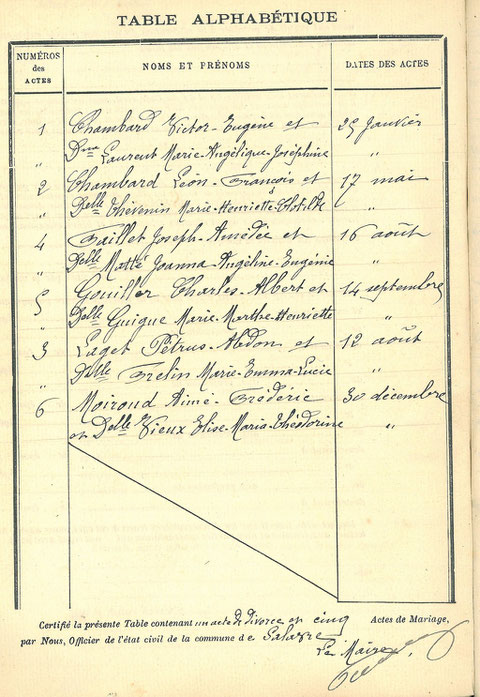 TABLE ALPHABÉTIQUE
NUMÉROS des ACTES
NOMS ET PRÉNOMS
DATES DES ACTES
1 Chambard Victor-Eugène et 25 Janvier
" Dme Laurent Marie-Angélique-Joséphine "
2 Chambard Léon-François et 17 mai
" Delle Thévenin Marie-Henriette-Clotilde "
4 Faillet Joseph-Amédée et 16 août
" Delle Matté Joanna-Angéline-Eugénie "
5 Gouiller Charles-Albert et 14 septembre
" Delle Guigue Marie-Marthe-Henriette "
3 Laget Pétrus-Abdon et 12 août
" Delle Frelin Marie-Emma-Lucie "
6 Moiroud Aimé-Frédéric 30 décembre
et Delle Vieux Elise-Maria-Théodorine "
Certifié la présente Table contenant un acte de divorce et cinq Actes de Mariage,
par Nous, Officier de l'état civil de la commune de
Le Maire,